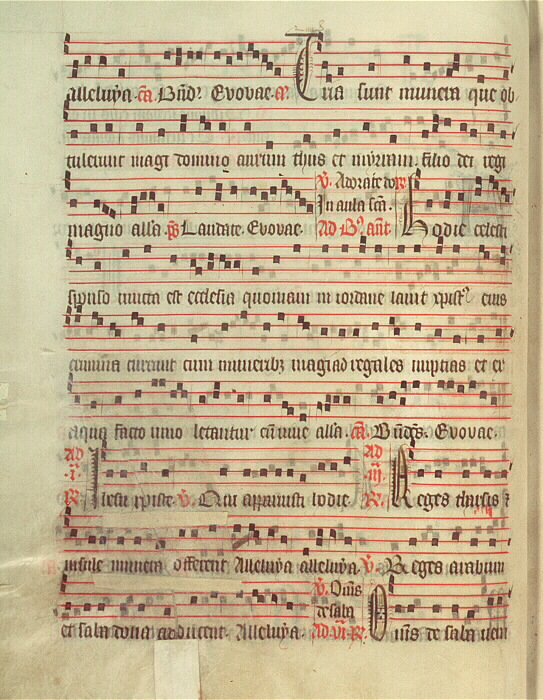 alleluya. ca. Bnd. Evovae. a. Tria sunt munera que ob
tulerunt magi domino aurum thus et mirram. filio dei regi
magno alla. ps Laudate. Evovae. V. Adorate do In aula scn. Ad B. ant. Hodie celesti
sponso iuncta est ecclesia quoniam in iordane lavit xpist eius
crimina currunt cum muneribz magi ad regales nuptias et ex
aqua facto vino letantur cunvive alla. ca. Bndcs. Evovae.
Ad i. R. Ihesu xpiste. V. Qui apparuisti hodie. Ad iii. R. Reges tharsis et
insule munera offerent. Alleluya alleluya. V. Reges arabum
et saba dona adducent. Alleluya. V. Oms de saba Ad vi. R. Oms de saba veni